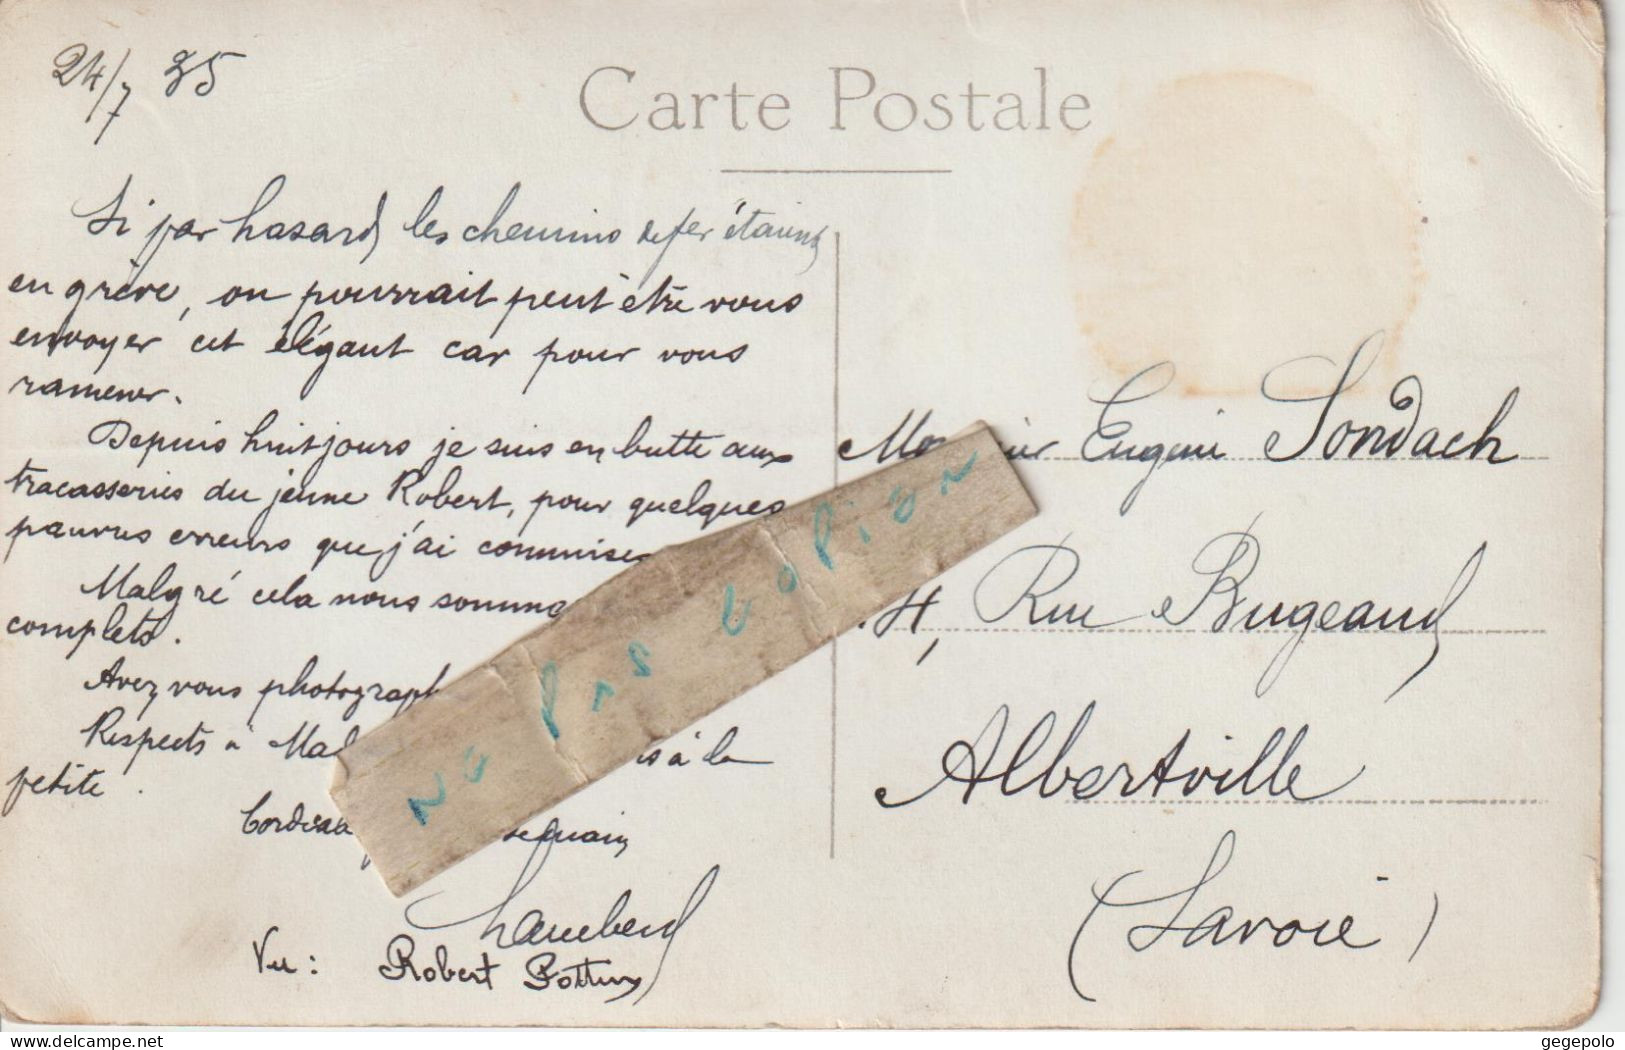 24/7 35
Carte Postale
Si par hasard les chemins de fer étaient
en grève, on pourrait peut être vous
envoyer cet élégant car pour vous
ramener.
Depuis huit jours je suis en butte aux
tracasseries du jeune Robert, pour quelques
pauvres erreurs que j'ai commises
Malgré cela nous somme
complets.
Avez vous photograph
Respects à Mad
s à la
petite.
Cordia
Lambert
Vu : Robert
Ne pas copier
Monsieur Eugène Sondach
4, Rue Bugeaud
Albertville
(Savoie)
delcampe.net
gegepolo